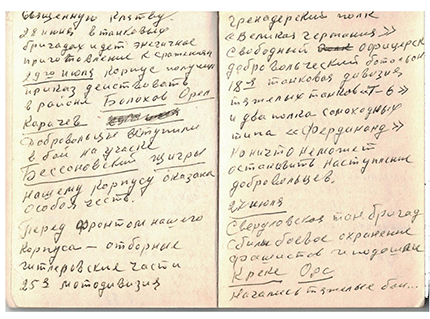 священную клятву
28 июня в танковых
бригадах идет энегичное
приготовление к сражениям
29го июля корпус получил
приказ действовать
в районе Болохов Орел
Карачев
Добровольцы вступили
в бой на участке
Бессоновский щигры
нашему корпусу оказана
особоя честь.
Перед фронтом нашего
корпуса — отборные
гитлеровские части
25я мотодивизия
гренодерский полк
«Великая германия»
свободный офицерск
добровольческий ботольон
18я танковая дивизия,
тяжелых танков «Т-6»
и два полка сомоходных
типа «Фердинонд»
но ничто неможет
остановить наступление
добровольцев.
27 июля
Свердловская тан бригад
сбили боевое охранение
фашистов и подошли
к реке Орс
Начались тяжелые бои...